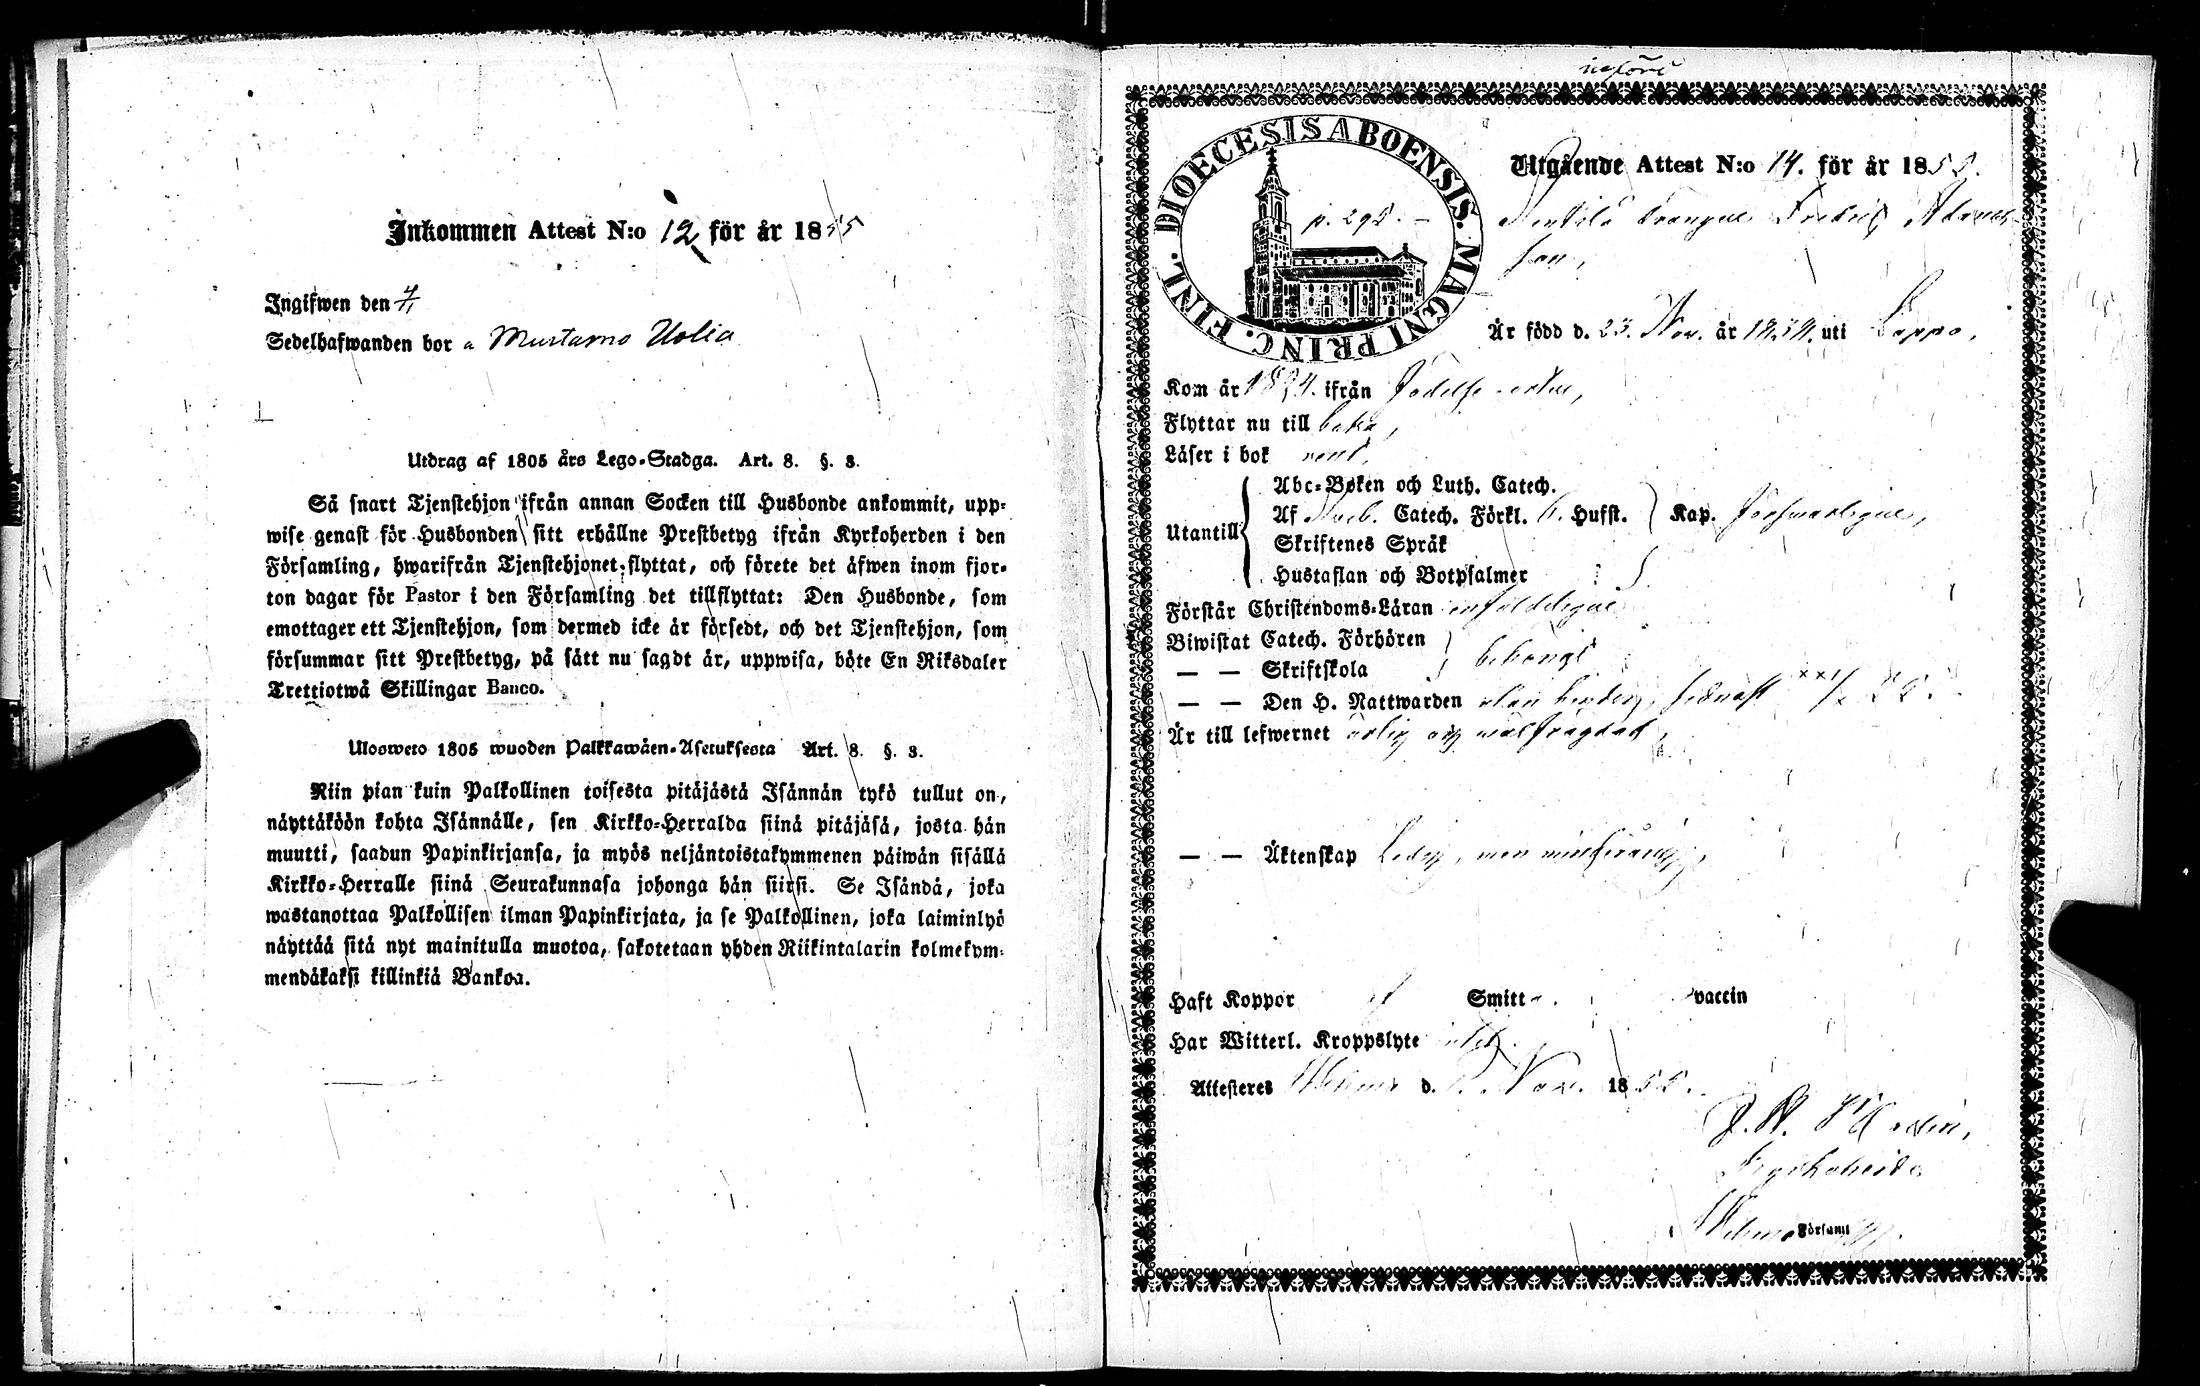 Inkommen Attest N:o 12 för år 1855
Ingifwen den
Sedelhafwanden bor a Murtamo Uolia
Utdrag af 1805 års Lego-Stadga. Art. 8. §. 3.
Så snart Tjenstehjon ifrån annan Socken till Husbonde ankommit, upp-
wise genast för Husbonden sitt erhållne Prestbetyg ifrån Kyrkoherden i den
Församling, hwarifrån Tjenstehjonet flyttat, och förete det äfwen inom fjor-
ton dagar för Pastor i den Församling det tillflyttat: Den Husbonde, som
emottager ett Tjenstehjon, som dermed icke är försedt, och det Tjenstehjon, som
försummar sitt Prestbetyg, på sätt nu sagdt är, uppwisa, böte En Riksdaler
Trettiotwå Skillingar Banco.
Ulosweto 1805 wuoden Palkkawäen-Asetuksesta Art. 8. §. 3.
Niin pian kuin Palkollinen toisesta pitäjästä Isännän tykö tullut on,
näyttäköön kohta Isännälle, sen Kirkko-Herralda siinä pitäjäsä, josta hän
muutti, saadun Papinkirjansa, ja myös neljäntoistakymmenen päiwän sisällä
Kirkko-Herralle siinä Seurakunnasa johonga hän siirsi. Se Isändä, joka
wastanottaa Palkollisen ilman Papinkirjata, ja se Palkollinen, joka laiminlyö
näyttää sitä nyt mainitulla muotoa, sakotetaan yhden Riikintalarin kolmekym-
mendäkaksi killinkiä Bankoa.
införd
DIOECESIS ABOENSIS. MAGNI PRINC. FINL.
p. 295.
Utgående Attest N:o 14. för år 1855.
drängen Fredric
son,
Är född d. 23. Nov. år 1834. uti Loppo,
Kom år 1834. ifrån
Flyttar nu till
Läser i bok rent,
Abc-Boken och Luth. Catech.
Utantill Af Sveb. Catech. Förkl. Husst. Kap. försvarligen,
Skriftenes Språk
Hustaflan och Botpsalmer
Förstår Christendoms-Läran enfaldeligen
Biwistat Catech. Förhören
— — Skriftskola behörigt
— — Den H. Nattwarden utan hinder, sednast
Är till lefwernet ärlig och wälfrägdad,
— — Äktenskap Ledig, men
Haft Koppor Smitt vaccin
Har Witterl. Kroppslyte
Attesteres Wehmo d. Nov. 1855.
Kyrkoherde
Wehmo Församl